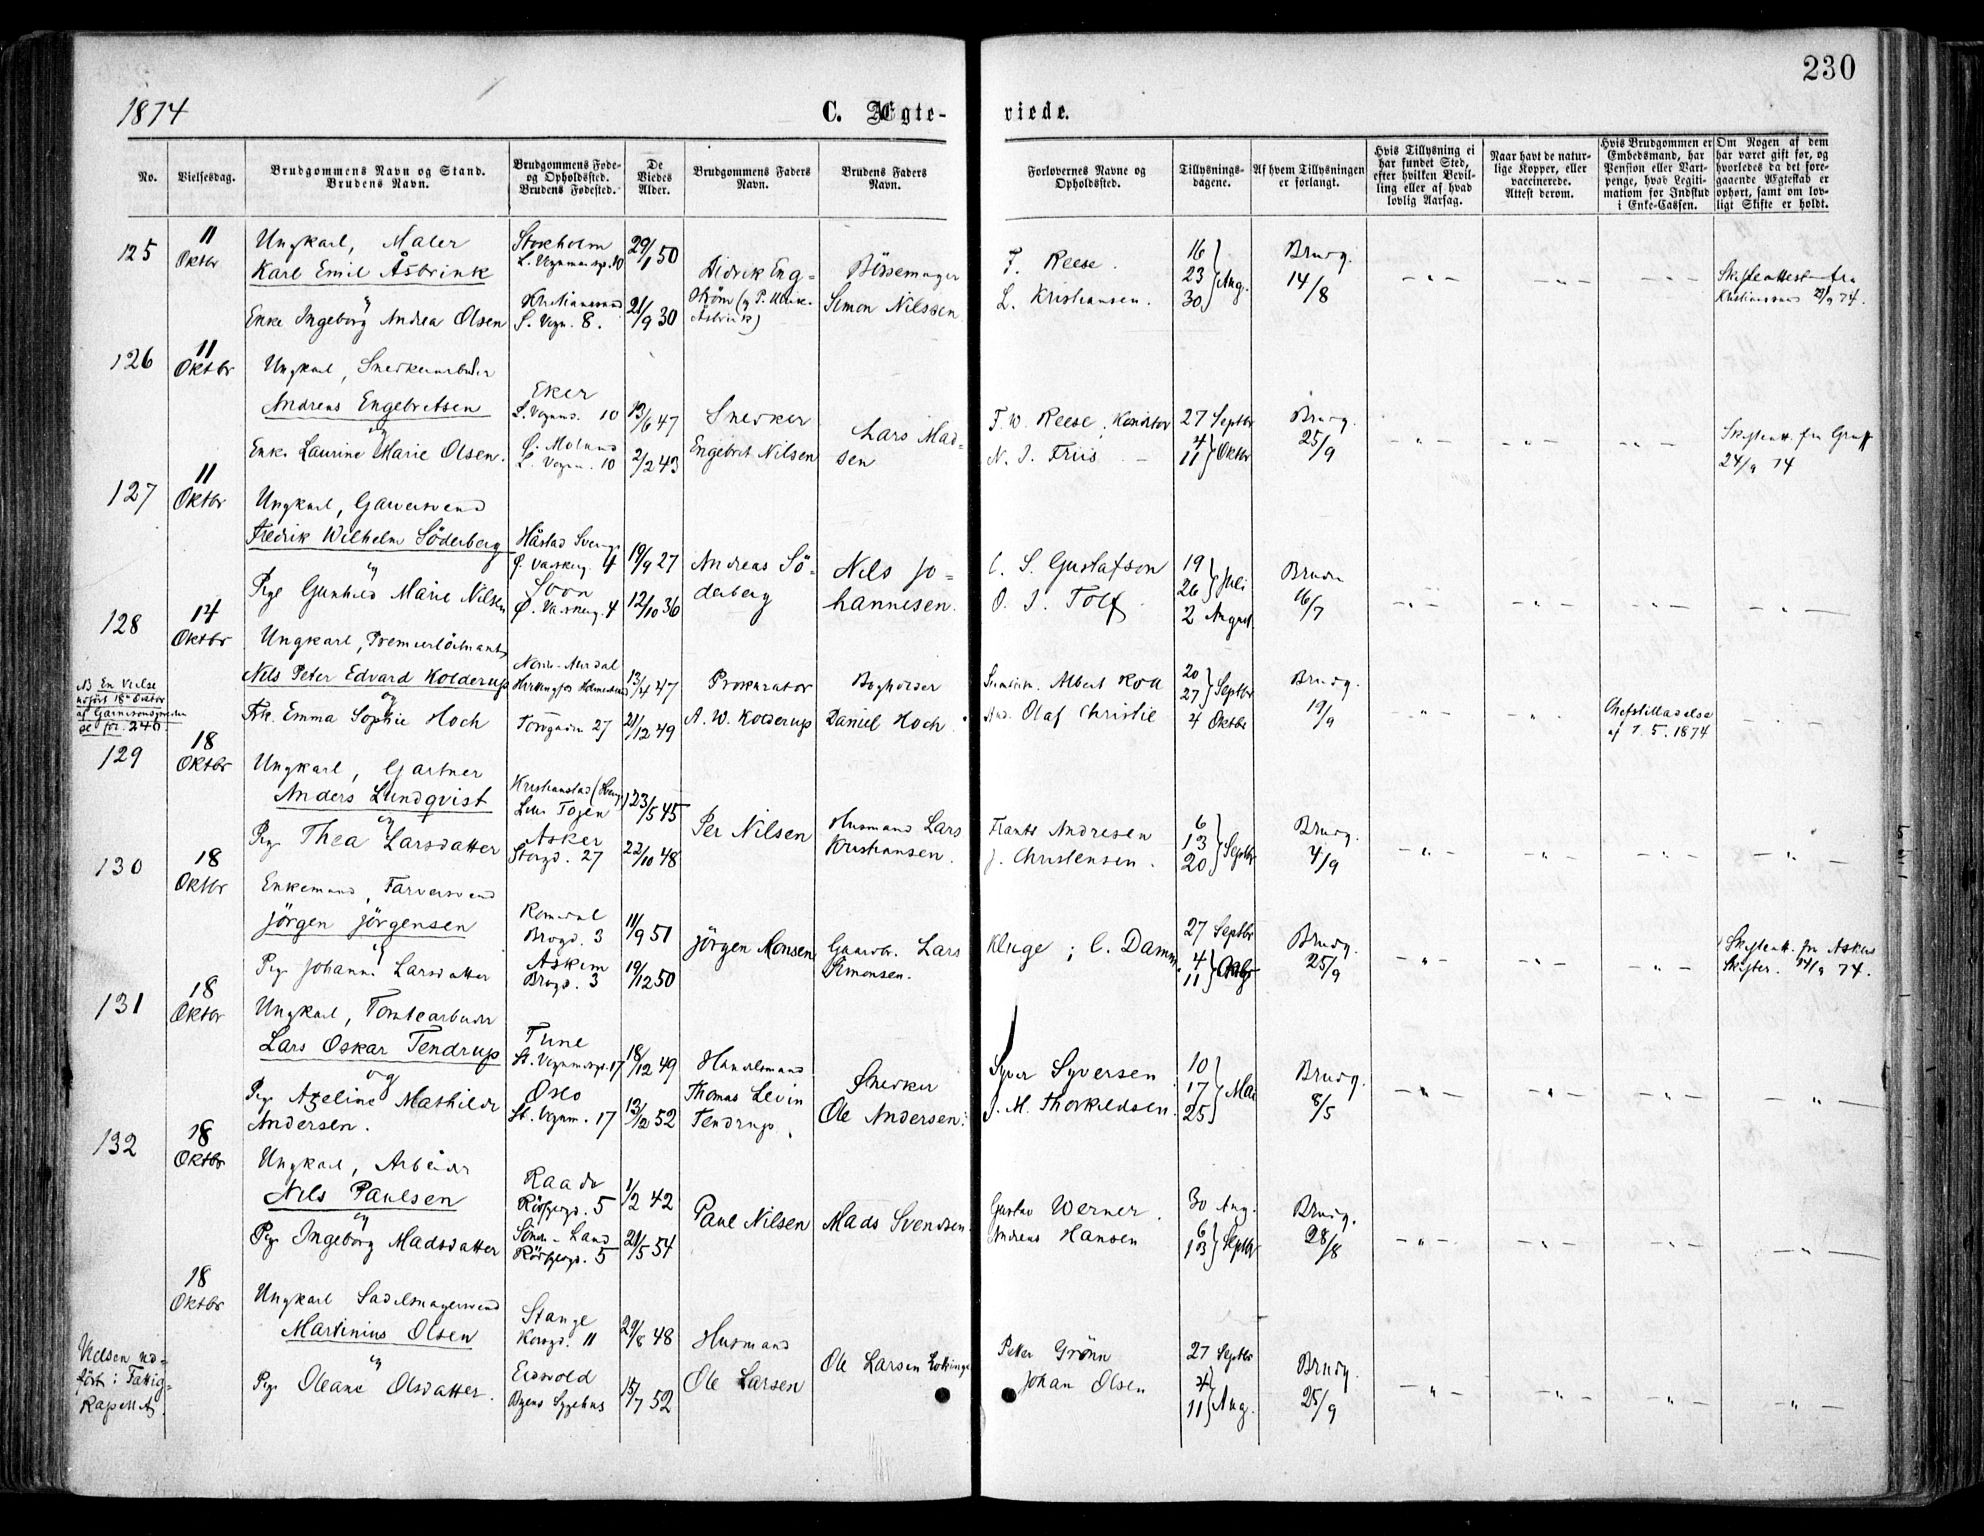 230
1874
C. Ægte-
viede.
No.
Vielsesdag.
Brudgommens Navn og Stand.
Brudens Navn.
Brudgommens Føde-
og Opholdssted.
Brudens Fødested.
De
Viedes
Alder.
Brudgommens Faders
Navn.
Brudens Faders
Navn.
Forlovernes Navne og
Opholdssted.
Tillysnings-
dagene.
Af hvem Tillysningen
er forlangt.
Hvis Tillysning ei
har fundet Sted,
efter hvilken Bevil-
ling eller af hvad
lovlig Aarsag.
Naar havt de natur-
lige Kopper, eller
vaccinerede.
Attest derom.
Hvis Brudgommen er
Embedsmand, har
Pension eller Vart-
penge, hvad Legiti-
mation for Indskud
i Enke-Cassen.
Om Nogen af dem
har været gift før, og
hvorledes da det fore-
gaaende Ægteskab er
ophørt, samt om lov-
ligt Skifte er holdt.
125
11
Oktbr
Ungkarl, Maler
Karl Emil Åsbrink
og
Enke Ingeborg Andrea Olsen
Stockholm
Kristianssund
29/1 50
21/9 30
Didrik Eng-
strøm
Bössemager
Simon Nilssen
F. Reese.
L. Kristiansen.
16
23
30 } Aug.
Brudg.
14/8
Skifteattest fra
Kristianssund 29/9 74.
126
11
Oktbr
Ungkarl, Snedkerarbeider
Andreas Engebretsen
og
Enke Laurine Marie Olsen.
Eker
10
13/6 47
2/2 43
Snedker
Engebret Nilsen
Lars Mad-
sen
F. W. Reese, Kontor
N. J. Friis
27 Septbr
4
11 } Oktbr
Brudg.
25/9
24/9 74
127
11
Oktbr
Ungkarl, Garversvend
Fredrik Wilhelm Söderberg
og
Pige Gunhild Marie Nilsen
Soon
19/9 27
12/10 36
Andreas Sö-
derberg
Nils Jo-
hannesen.
C. S. Gustafson
O. J. Tolf
19
26 } Juli
2 August.
Bruden
16/7
128
14
Oktbr
Ungkarl, Premierlöitnant
Nils Peter Edvard Kolderup
og
Frk. Emma Sophie Hoch
Nord-Aurdal
27
13/4 47
21/12 49
Prokurator
A. W. Kolderup
Bogholder
Daniel Hoch
Albert Koll
Olaf Christie
20
27 } Septbr
4 Oktbr
Brudg.
19/9
Chefstilladelse
af 7. 5. 1874
NB En Vielse
udført 18de Oktbr
af Garnisonspresten
se fol. 246.
129
18
Oktbr
Ungkarl, Gartner
Anders Lundqvist
og
Pige Thea Larsdatter
Kristianstad
Lille Tøjen
Asker
Storgd. 27
23/5 45
22/10 48
Per Nilsen
Husmand Lars
Kristiansen.
Frants Andresen
J. Christensen.
6
13
20 } Septbr
Brudg.
4/9
130
18
Oktbr
Enkemand, Farversvend
Jörgen Jörgensen
og
Pige Johanne Larsdatter
Romedal
Brogd. 3
Askim
Brogd. 3
11/9 51
19/12 50
Jörgen Monsen
Gaardbr. Lars
Simonsen.
Kluge; C. Damm.
27 Septbr
4
11 } Oktbr
Brudg.
25/9
Skifteatt. fra Askers
Skifter. 74.
131
18
Oktbr
Ungkarl, Tomtearbeider
Lars Oskar Tendrup
og
Pige Azeline Mathilde
Andersen.
Tune
17
Oslo
St. Vognm. 17
18/12 49
13/12 52
Handelsmand
Thomas Levin
Tendrup.
Snedker
Ole Andersen
Syver Syversen
J. M. Thorkildsen.
10
17
25 } Mai
Brudg.
8/5
132
18
Oktbr
Ungkarl, Arbeider
Nils Paulsen
og
Pige Ingeborg Madsdatter
Raade
5
Söndre-Land
5
1/2 42
21/5 54
Paul Nilsen
Mads Svendsen
Gustav Werner.
Andreas Hansen
30 Aug.
6
13 } Septbr
Brudg.
28/8
18
Oktbr
Ungkarl Sadelmagersvend
Martinius Olsen
og
Pige Oleane Olsdatter.
Stange
Korsgd. 11
Eidsvold
Byens Sygehus
29/8 48
15/7 52
Husmand
Ole Larsen
Ole Larsen
Peter Grönn
Johan Olsen
27 Septbr
4
11 } Aug.
Brudg.
25/9
Vielsen ud-
ført i Fattig-
Kapellet.